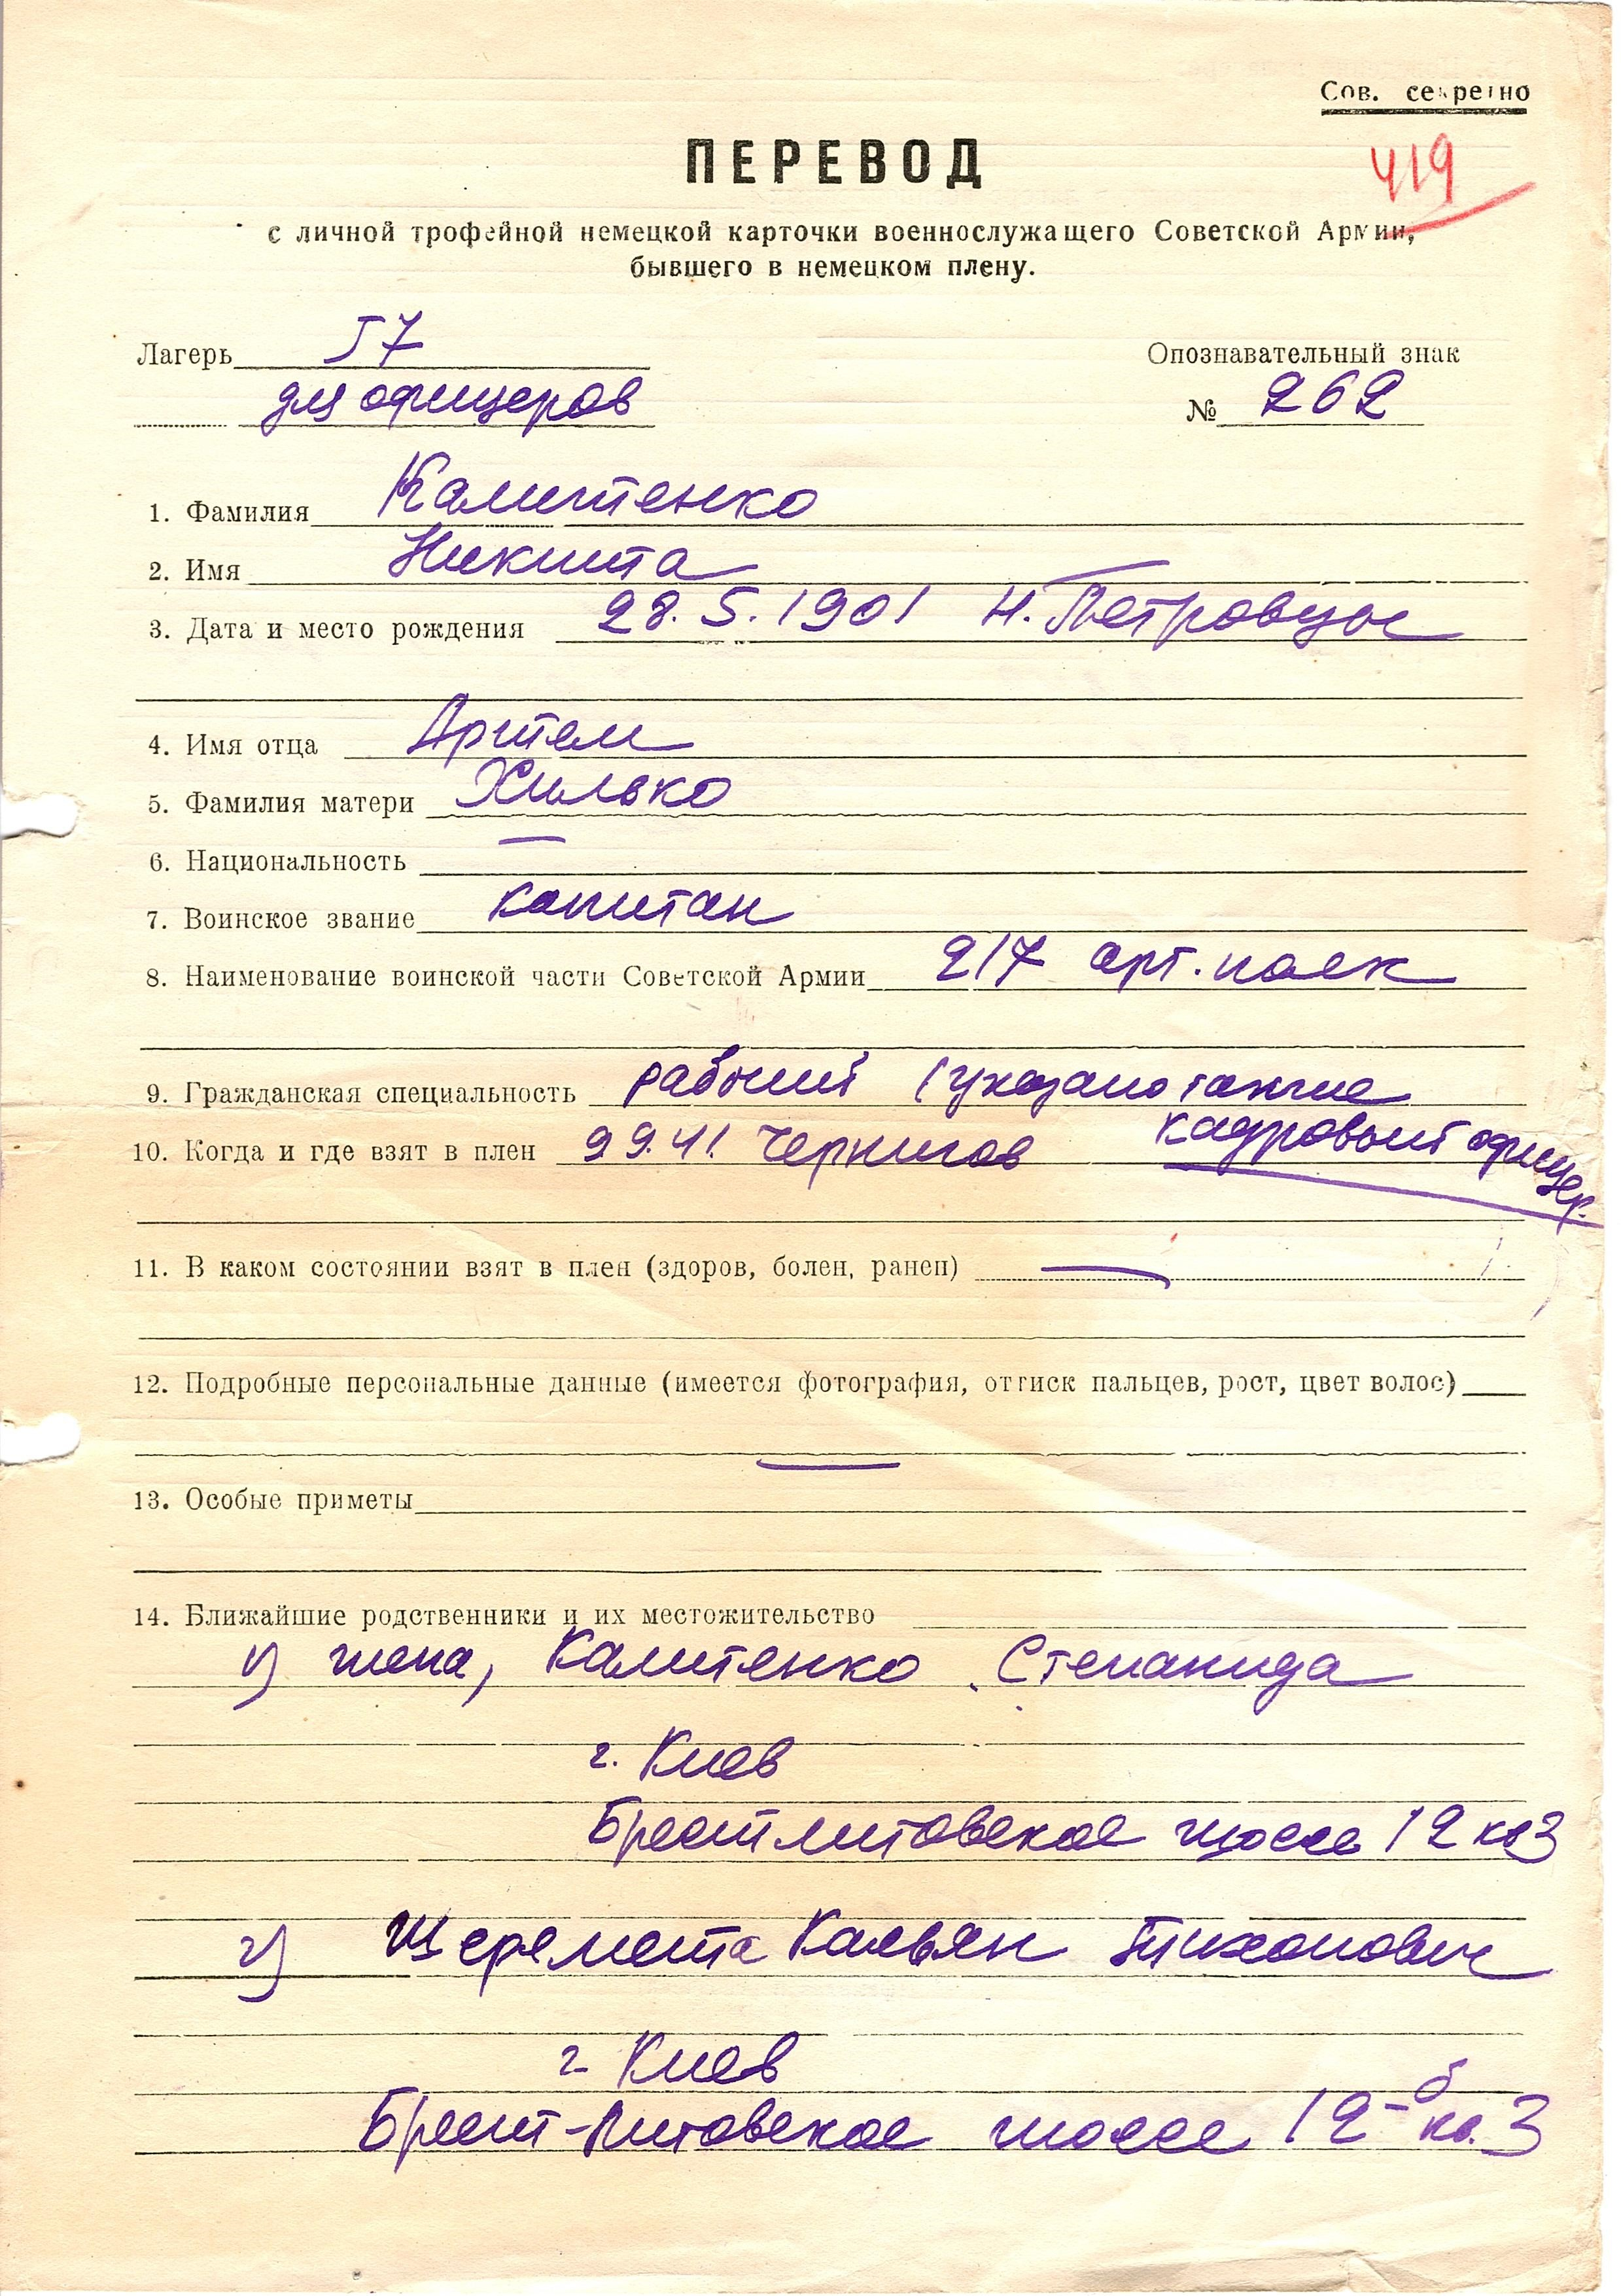 Сов. секретно
ПЕРЕВОД
419
с личной трофейной немецкой карточки военнослужащего Советской Армии,
бывшего в немецком плену.
Лагерь 57
Опознавательный знак
для офицеров
№ 262
1. Фамилия Калитенко
2. Имя Никита
3. Дата и место рождения 28.5.1901 Н. Петровцы
4. Имя отца Артем
5. Фамилия матери Хилько
6. Национальность —
7. Воинское звание капитан
8. Наименование воинской части Советской Армии 217 арт. полк
9. Гражданская специальность рабочий (указано также
10. Когда и где взят в плен 9 9.41. Чернигов кадровый офицер.
11. В каком состоянии взят в плен (здоров, болен, ранен) —
12. Подробные персональные данные (имеется фотография, оттиск пальцев, рост, цвет волос)
—
13. Особые приметы
14. Ближайшие родственники и их местожительство
1) жена, Калитенко Степанида
г. Киев
Брестлитовское шоссе 12 кв 3
2) Шеремета Касьян Тихонович
г Киев
Брест-Литовское шоссе 12-б кв. 3